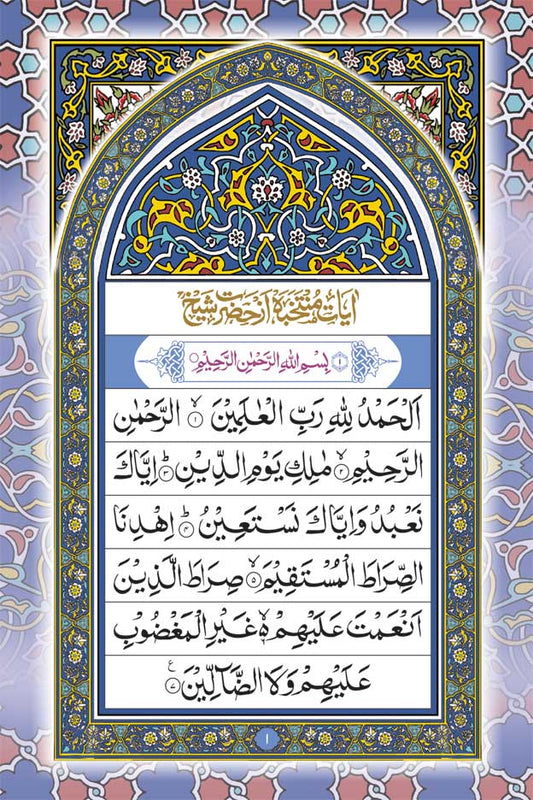 اٰیَاتِ مُنْتَخَبَہ اَزْ حَضْرَتِ شَیْخ
۱ بِسْمِ اللهِ الرَّحْمٰنِ الرَّحِيْمِ
اَلْحَمْدُ لِلّٰهِ رَبِّ الْعٰلَمِيْنَ ۙ۱ الرَّحْمٰنِ
الرَّحِيْمِ ۙ۲ مٰلِكِ يَوْمِ الدِّيْنِ ؕ۳ اِيَّاكَ
نَعْبُدُ وَاِيَّاكَ نَسْتَعِيْنُ ؕ۴ اِهْدِنَا
الصِّرَاطَ الْمُسْتَقِيْمَ ۙ۵ صِرَاطَ الَّذِيْنَ
اَنْعَمْتَ عَلَيْهِمْ ۙ۬ۦ غَيْرِ الْمَغْضُوْبِ
عَلَيْهِمْ وَلَا الضَّآلِّيْنَ ۷ ع
۱